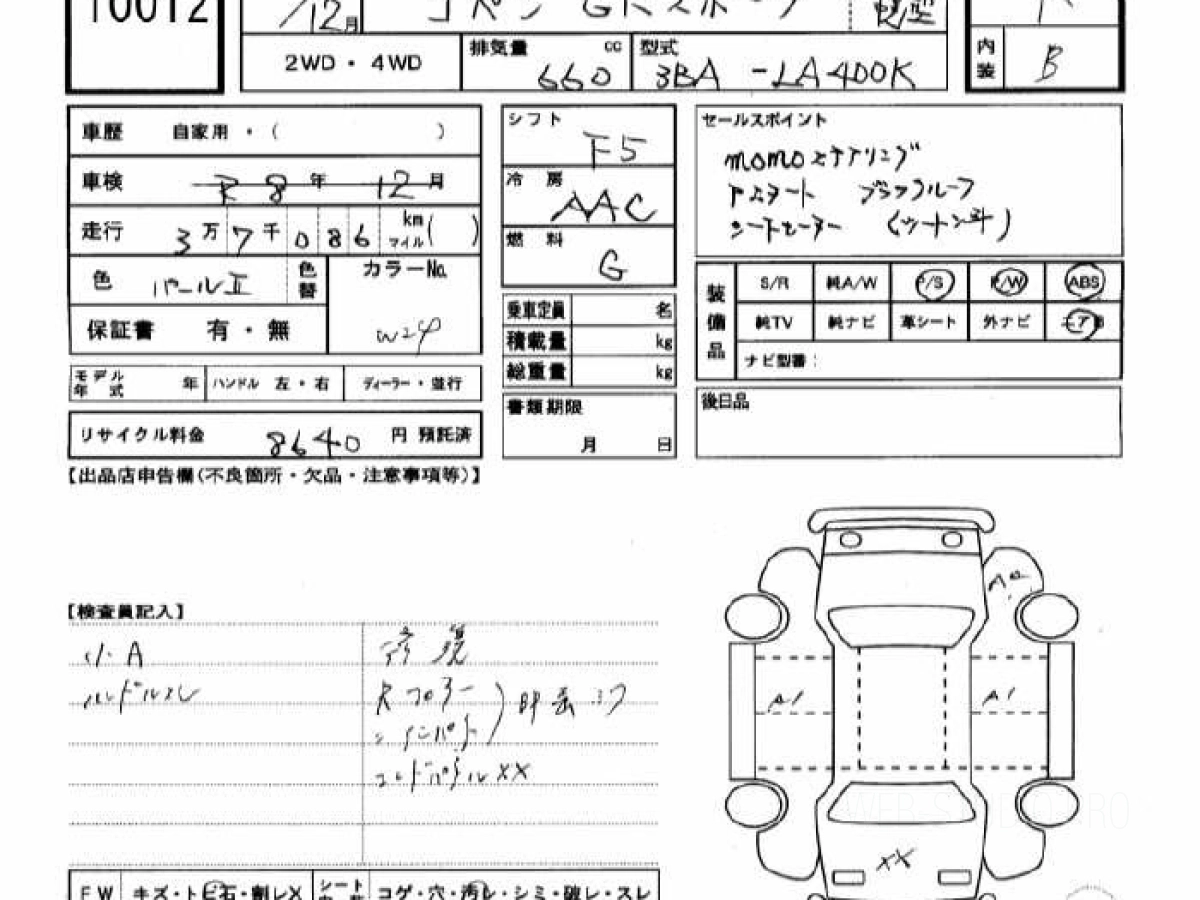 10012
/12月 コペン GRスポーツ
2WD・4WD 排気量 660 cc 型式 3BA-LA400K
内装 B
車歴 自家用・( )
車検 R8年 12月
走行 3万7千086 km マイル( )
色 パールⅡ 色替 カラーNo. W24
保証書 有・無
モデル年式 年 ハンドル 左・右 ディーラー・並行
リサイクル料金 8640 円 預託済
シフト F5
冷房 AAC
燃料 G
乗車定員 名
積載量 kg
総重量 kg
書類期限 月 日
セールスポイント
momoステアリング
ブラックルーフ
シートヒーター
装備品 S/R 純A/W P/S P/W ABS
純TV 純ナビ 革シート 外ナビ エアB
ナビ型番:
後日品
【出品店申告欄(不良箇所・欠品・注意事項等)】
【検査員記入】
小A
ハンドルスレ
修複
Rフロアー
インパネ
XX
A2
A1 A1
XX
FW キズ・トビ石・割レX シート コゲ・穴・汚レ・シミ・破レ・スレ